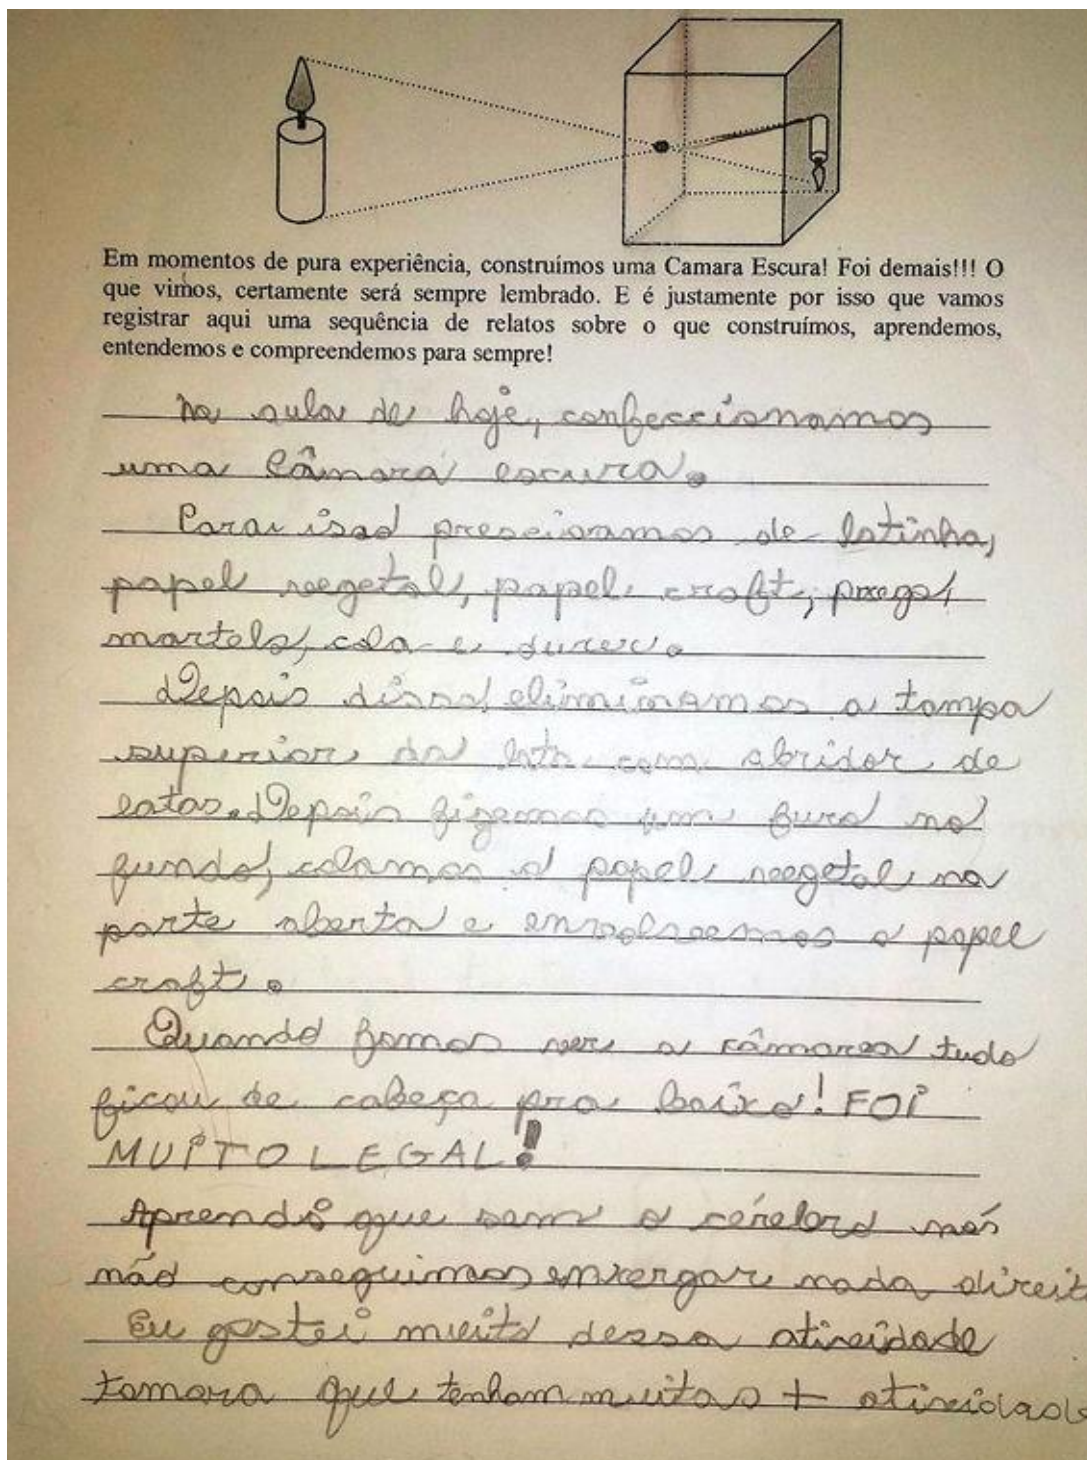 Em momentos de pura experiência, construímos uma Camara Escura! Foi demais!!! O
que vimos, certamente será sempre lembrado. E é justamente por isso que vamos
registrar aqui uma sequência de relatos sobre o que construímos, aprendemos,
entendemos e compreendemos para sempre!
Na aula de hoje, confeccionamos
uma Câmara escura.
Para isso precisamos de latinha,
papel vegetal, papel craft, prego,
martelo, cola e durex.
Depois disso eliminamos a tampa
superior da lata com abridor de
latas. Depois fizemos um furo no
fundo, colamos o papel vegetal na
parte aberta e envolvemos o papel
craft.
Quando fomos ver a câmara tudo
ficou de cabeça pra baixo! FOI
MUITO LEGAL!
Aprendi que sem o cérebro nós
não conseguimos enxergar nada direit
Eu gostei muito dessa atividade
tomara que tenham muitas + atividade